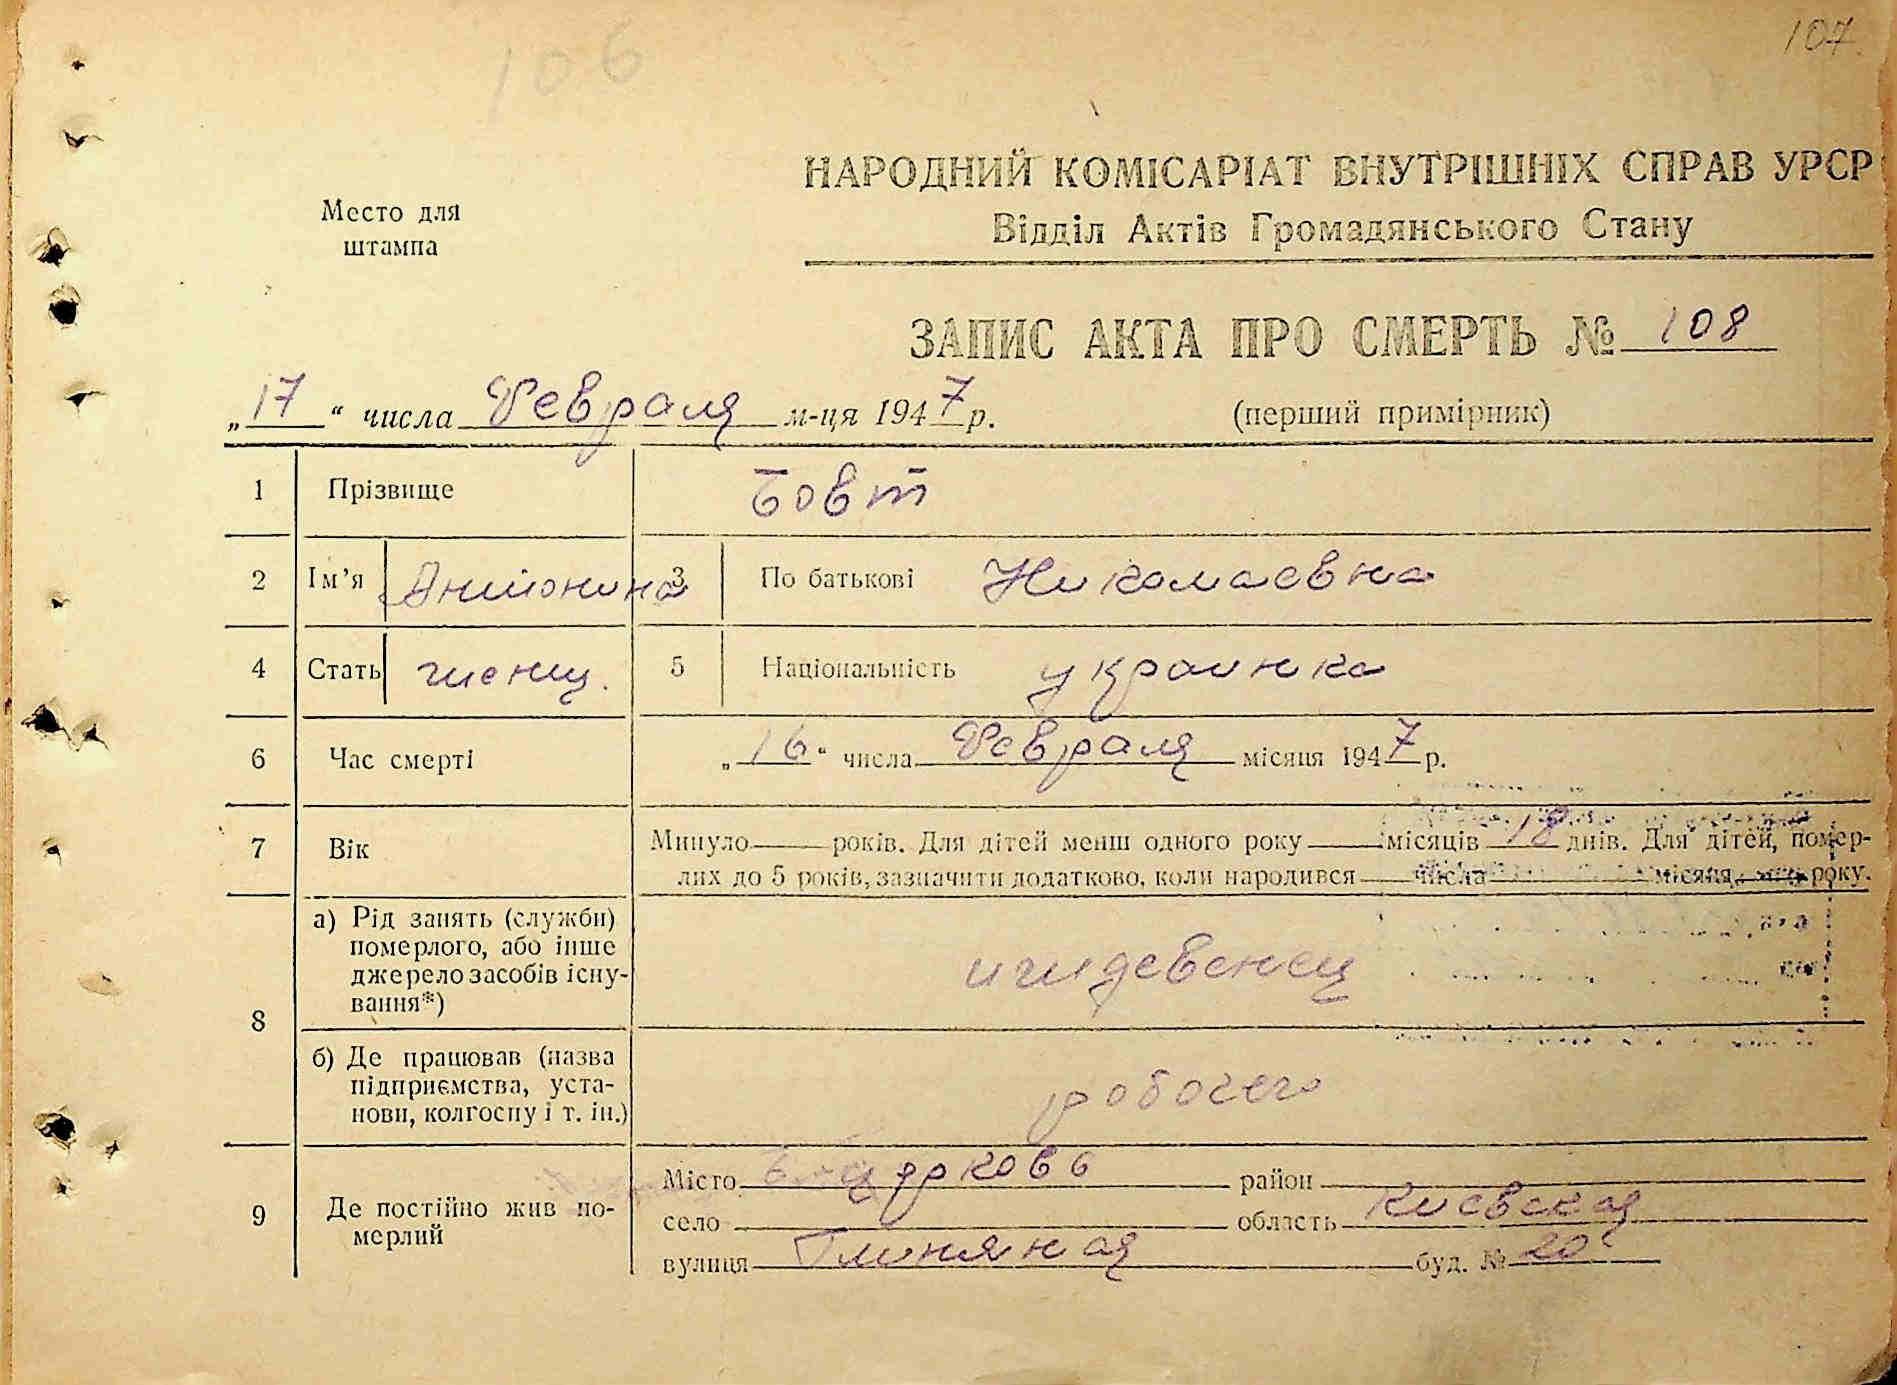 106
107
НАРОДНИЙ КОМІСАРІАТ ВНУТРІШНІХ СПРАВ УРСР
Место для
штампа
Відділ Актів Громадянського Стану
ЗАПИС АКТА ПРО СМЕРТЬ № 108
„17“ числа Февраля м-ця 1947 р. (перший примірник)
1 Прізвище Бовт
2 Ім’я Антонина 3 По батькові Николаевна
4 Стать женщ. 5 Національність украинка
6 Час смерті „16“ числа Февраля місяця 1947 р.
7 Вік Минуло років. Для дітей менш одного року місяців 18 днів. Для дітей, помер-
лих до 5 років, зазначити додатково, коли народився числа місяця року.
8 а) Рід занять (служби)
померлого, або інше
джерело засобів існу-
вання*) иждевенец
б) Де працював (назва
підприємства, уста-
нови, колгоспу і т. ін.) робочего
9 Де постійно жив по-
мерлий
Місто район
село область Киевская
вулиця Глиняная буд. № 20